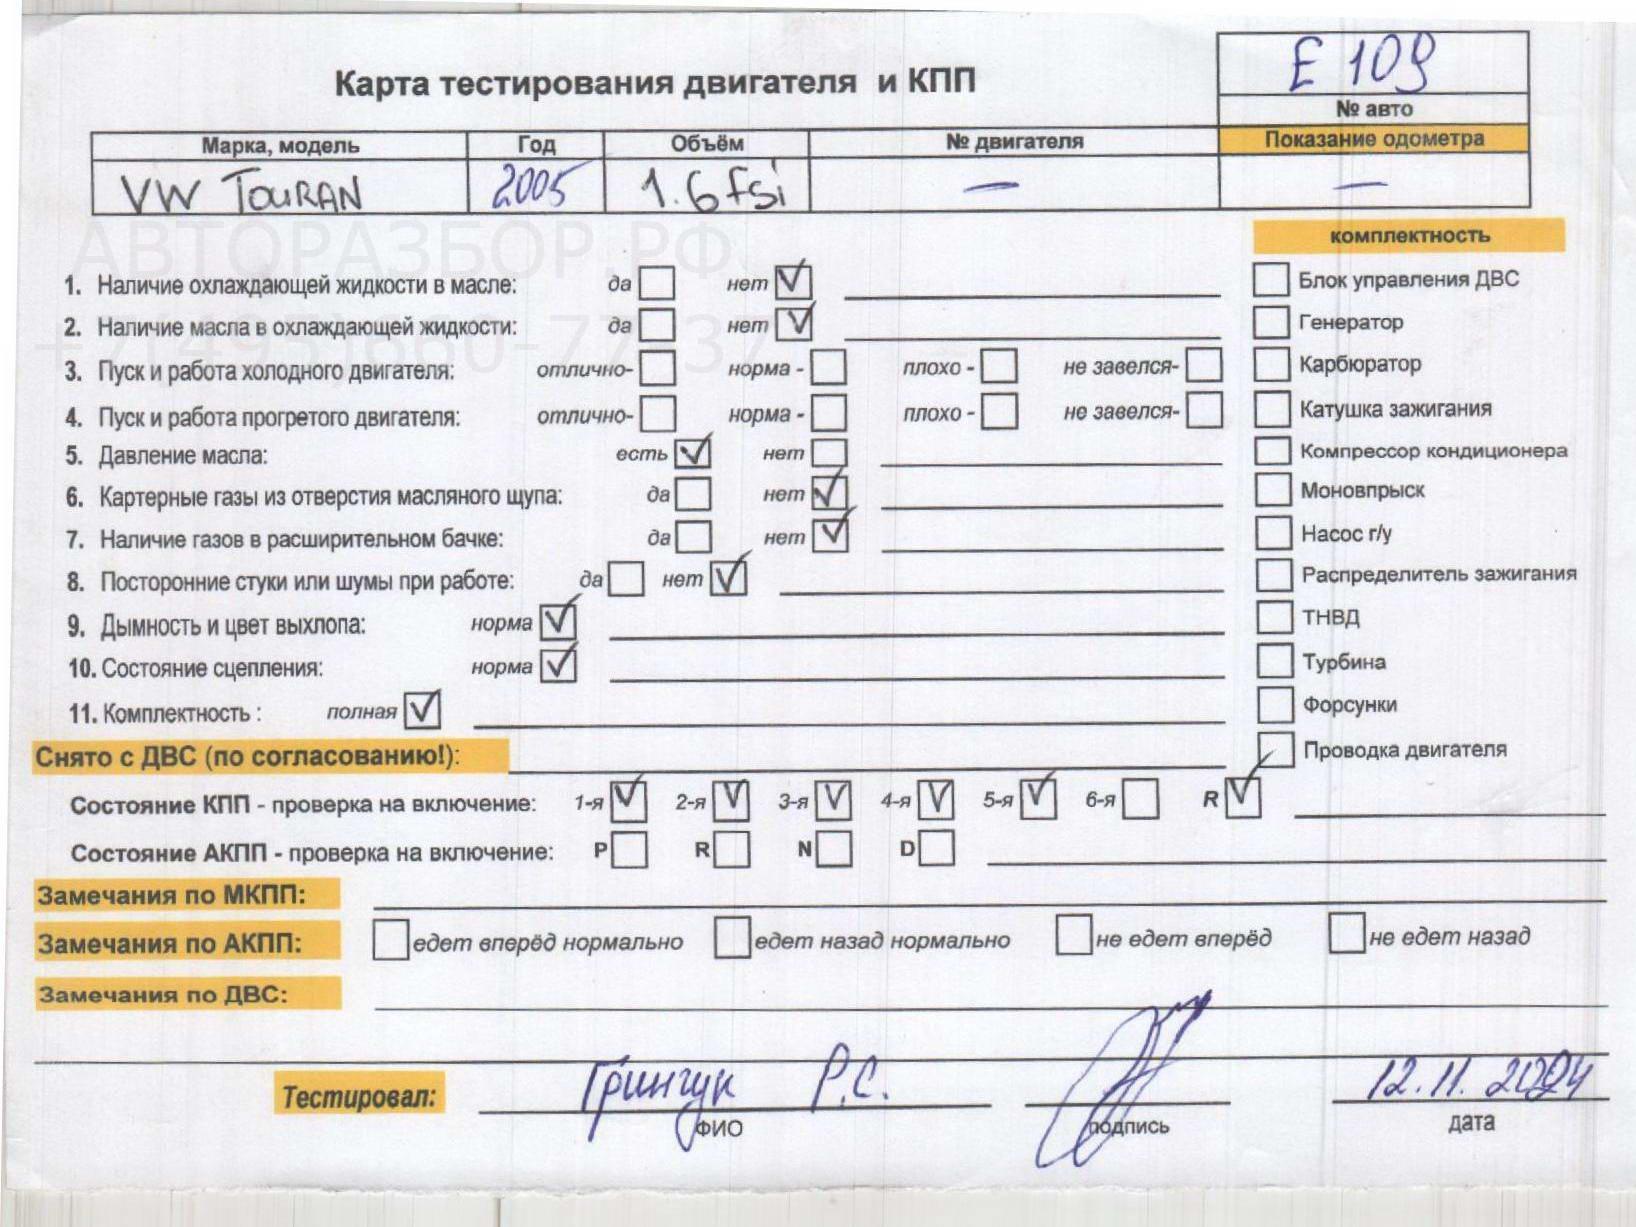 Карта тестирования двигателя и КПП
E 109
№ авто
Марка, модель Год Объём № двигателя Показание одометра
VW TOURAN 2005 1.6 fsi — —
АВТОРАЗБОР.РФ
+7(495)660-77-37
комплектность
1. Наличие охлаждающей жидкости в масле: да нет Блок управления ДВС
2. Наличие масла в охлаждающей жидкости: да нет Генератор
3. Пуск и работа холодного двигателя: отлично- норма - плохо - не завелся- Карбюратор
4. Пуск и работа прогретого двигателя: отлично- норма - плохо - не завелся- Катушка зажигания
5. Давление масла: есть нет Компрессор кондиционера
6. Картерные газы из отверстия масляного щупа: да нет Моновпрыск
7. Наличие газов в расширительном бачке: да нет Насос г/у
8. Посторонние стуки или шумы при работе: да нет Распределитель зажигания
9. Дымность и цвет выхлопа: норма ТНВД
10. Состояние сцепления: норма Турбина
11. Комплектность : полная Форсунки
Снято с ДВС (по согласованию!): Проводка двигателя
Состояние КПП - проверка на включение: 1-я 2-я 3-я 4-я 5-я 6-я R
Состояние АКПП - проверка на включение: P R N D
Замечания по МКПП:
Замечания по АКПП: едет вперёд нормально едет назад нормально не едет вперёд не едет назад
Замечания по ДВС:
Тестировал: Гринчук Р.С. 12.11.2024
ФИО подпись дата